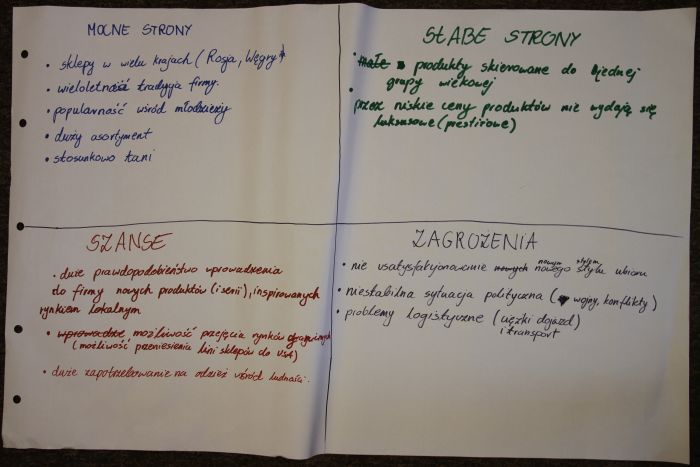 MOCNE STRONY
• sklepy w wielu krajach (Rosja, Węgry)
• wieloletność tradycja firmy.
• popularność wśród młodzieży
• duży asortyment
• stosunkowo tani
SŁABE STRONY
• małe produkty skierowane do jednej
grupy wiekowej
• przez niskie ceny produktów nie wydają się
luksusowe (prestiżowe)
SZANSE
• duże prawdopodobieństwo wprowadzenia
do firmy nowych produktów (i serii), inspirowanych
rynkiem lokalnym
• wprowadze możliwość przejęcia rynków
(możliwość przeniesienia linii sklepów do USA)
• duże zapotrzebowanie na odzież wśród ludności.
ZAGROŻENIA
nowym stylem
• nie usatysfakcjonowanie nowych nowego stylu ubioru
• niestabilna sytuacja polityczna (wojny, konflikty)
• problemy logistyczne (ciężki dojazd)
i transport